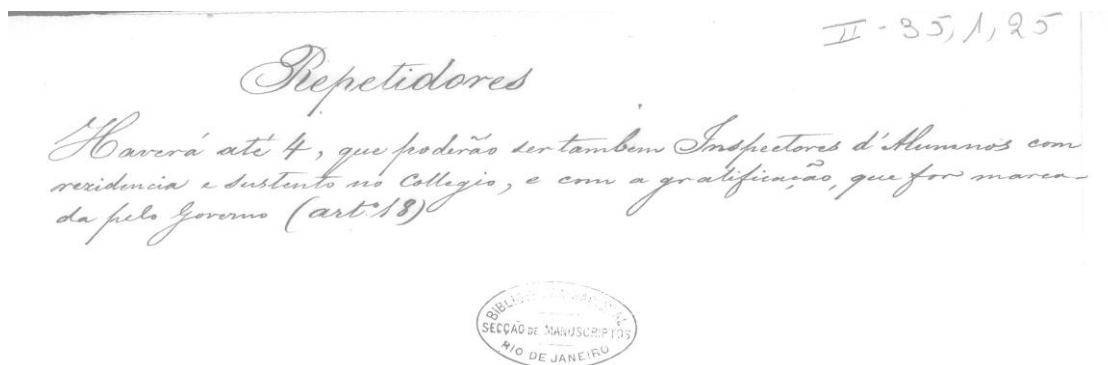 II-35,1,25
Repetidores
Haverá até 4, que poderão ser tambem Inspectores d'Alumnos com
rezidencia e sustento no Collegio, e com a gratificação, que for marca-
da pelo Governo (art.º 18)
BIBLIOTHECA NACIONAL
SECÇÃO DE MANUSCRIPTOS
RIO DE JANEIRO